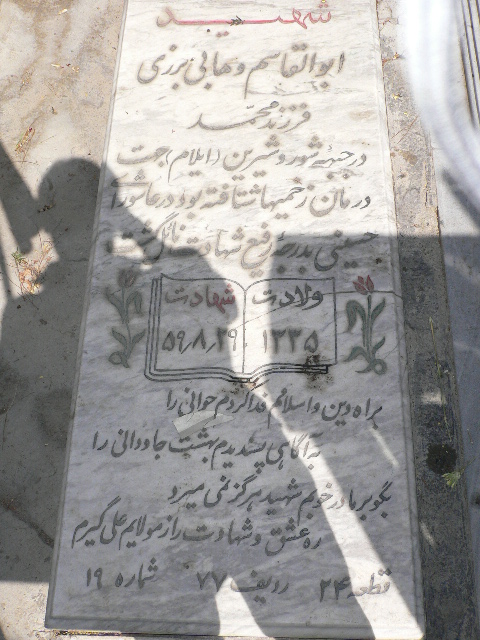 شهید
ابوالقاسم وهابی برزی
فرزند محمد
در جبهه شور و شیرین (ایلام) جهت
درمان زخمیها شتافته بود در عاشورای
حسینی بدرجه رفیع شهادت نائل گشت
ولادت شهادت
۱۳۳۵ ۵۹٫۸٫۲۹
براه دین و اسلامم فدا کردم جوانی را
به آگاهی پسندیدم بهشت جاودانی را
بگو بر مادر خوبم شهید هرگز نمی میرد
ره عشق و شهادت را ز مولایم علی گیرم
قطعه ۲۴ ردیف ۷۷ شماره ۱۹